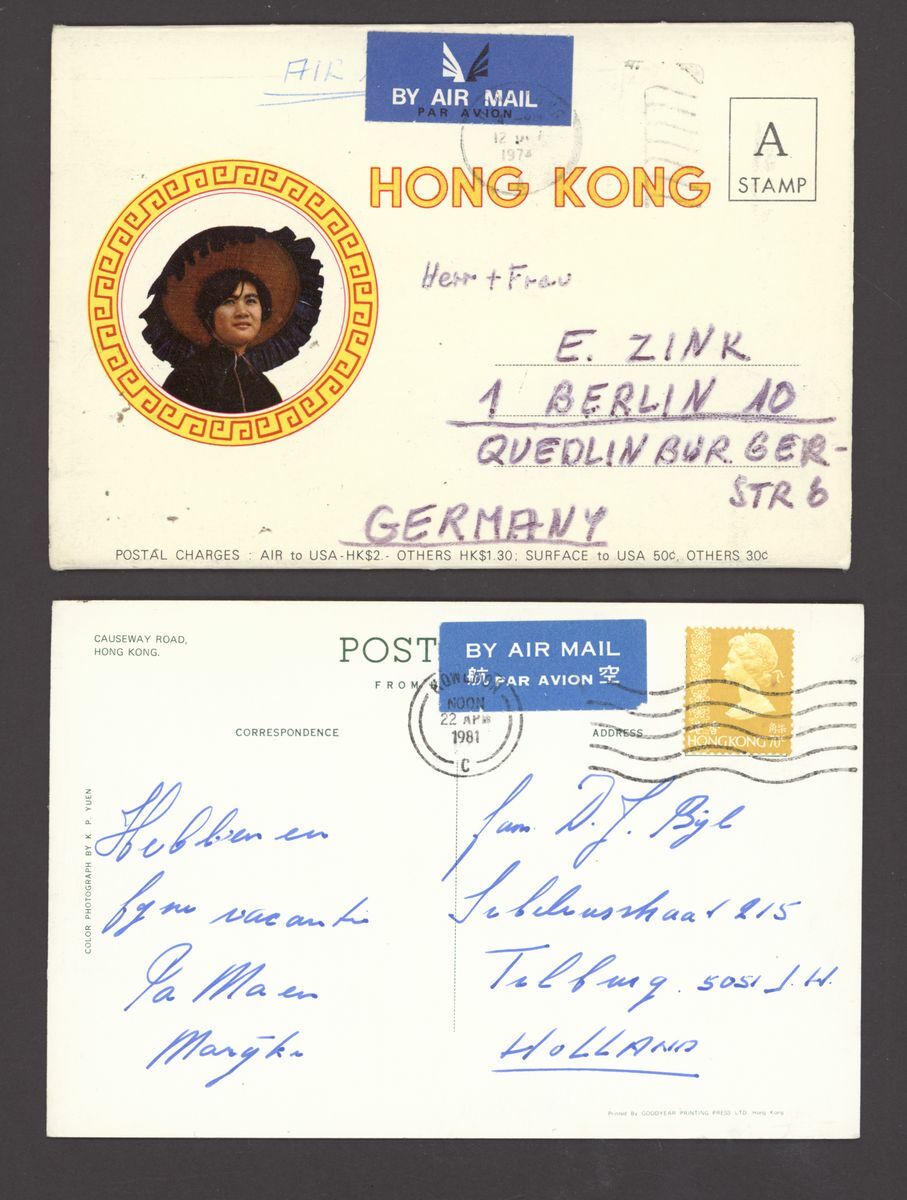 AIR
BY AIR MAIL
PAR AVION
12
1974
A
STAMP
HONG KONG
Herr + Frau
E. ZINK
1 BERLIN 10
QUEDLINBURGER-
STR 6
GERMANY
POSTAL CHARGES : AIR to USA-HK$2.- OTHERS HK$1.30; SURFACE to USA 50¢, OTHERS 30¢
CAUSEWAY ROAD,
HONG KONG.
POST
FROM
BY AIR MAIL
航 PAR AVION 空
KOWLOON
NOON
22 APR
1981
C
香 港
HONG KONG 70¢
CORRESPONDENCE
ADDRESS
Hebben en
fyne vacantie
Pa Ma en
Maryke
fam. D. J. Byl
Sibeliusstraat 215
Tilburg. 5051 J.H.
HOLLAND
COLOR PHOTOGRAPH BY K. P. YUEN
Printed By GOODYEAR PRINTING PRESS LTD. Hong Kong